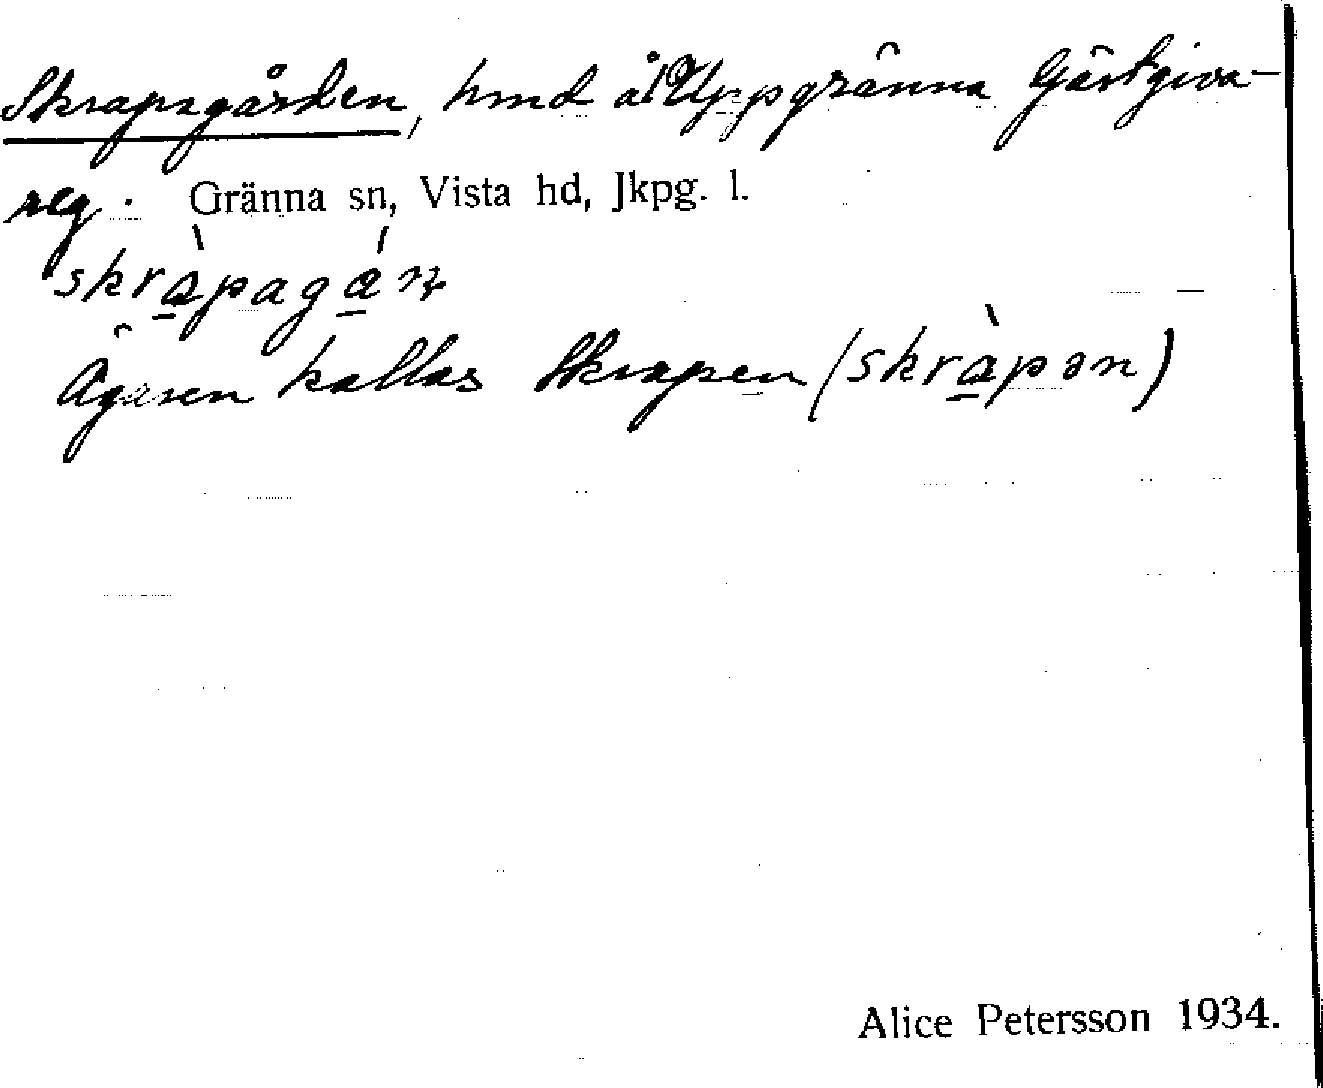 Skrapagården, hmd å Uppgränna Gästgiva-
reg. Gränna sn, Vista hd, Jkpg. l.
skràpagán
Ägaren kallas Skrapen (skràpən)
Alice Petersson 1934.